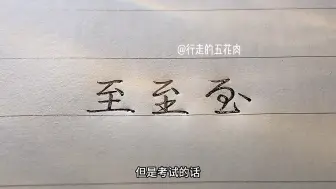 @行走的五花肉
至至至
但是考试的话